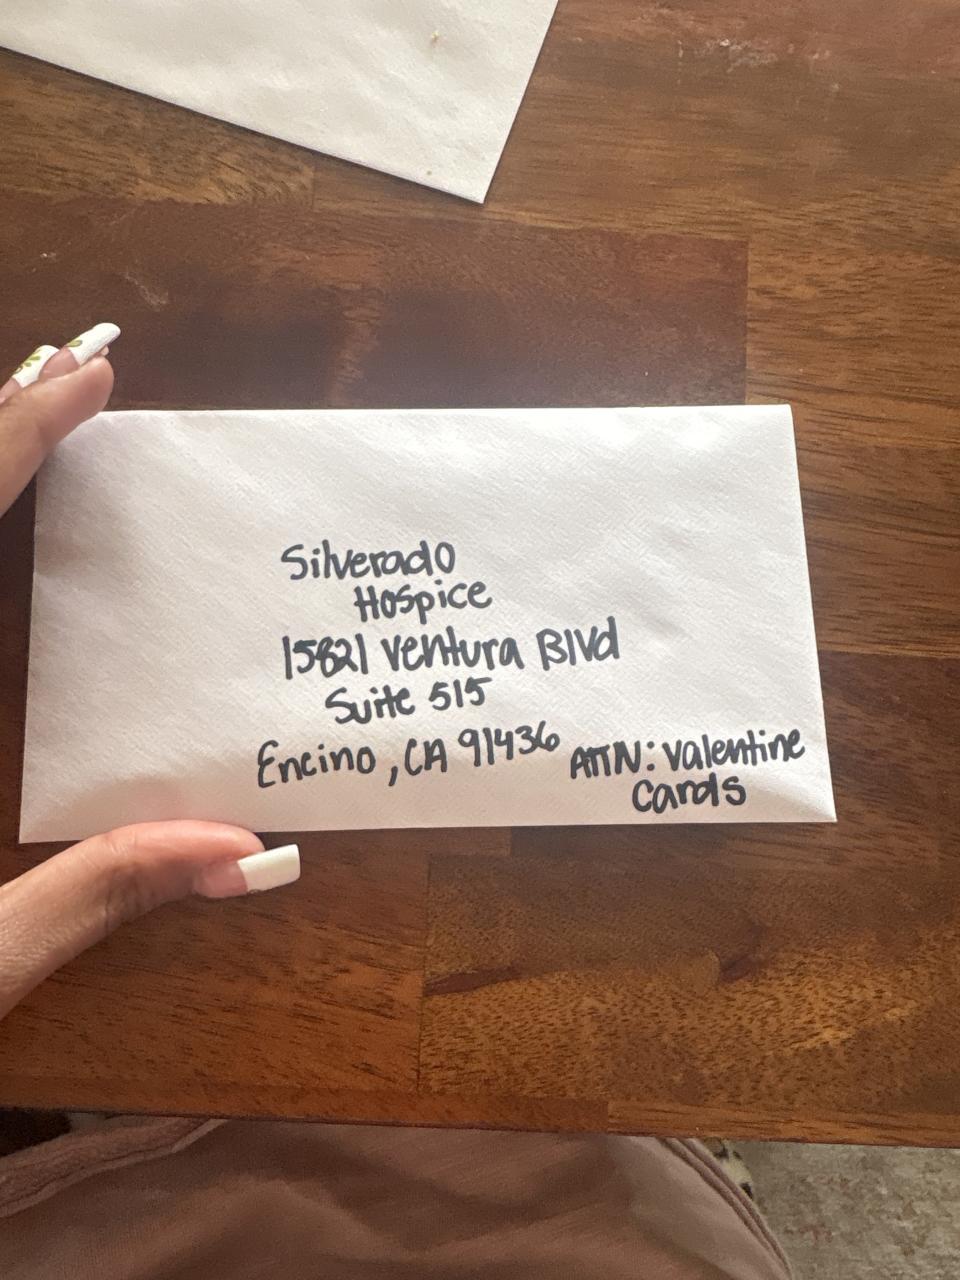 Silverado
Hospice
15821 Ventura Blvd
Suite 515
Encino, CA 91436
ATTN: Valentine
Cards